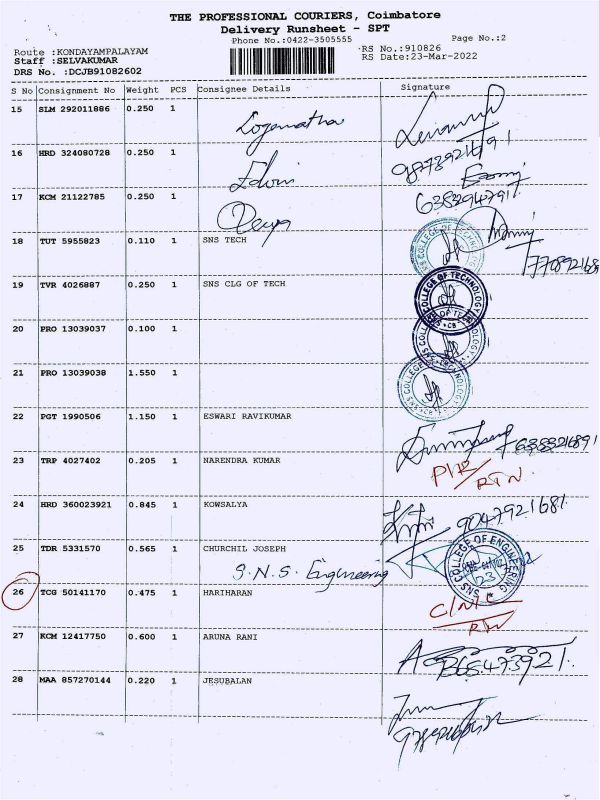 THE PROFESSIONAL COURIERS, Coimbatore
Delivery Runsheet - SPT
Phone No.:0422-3505555
Page No.:2
Route :KONDAYAMPALAYAM
RS No.:910826
Staff :SELVAKUMAR
RS Date:23-Mar-2022
DRS No. :DCJB91082602
S No Consignment No Weight PCS Consignee Details Signature
15 SLM 292011886 0.250 1
Logamatha
16 HRD 324080728 0.250 1
Edwin
17 KCM 21122785 0.250 1
6382947917
Deiya
18 TUT 5955823 0.110 1 SNS TECH
SNS COLLEGE OF TECHNOLOGY
19 TVR 4026887 0.250 1 SNS CLG OF TECH
SNS COLLEGE OF TECHNOLOGY
20 PRO 13039037 0.100 1
SNS COLLEGE OF TECHNOLOGY
21 PRO 13039038 1.550 1
SNS COLLEGE OF TECHNOLOGY
22 PGT 1990506 1.150 1 ESWARI RAVIKUMAR
23 TRP 4027402 0.205 1 NARENDRA KUMAR
RTN
24 HRD 360023921 0.845 1 KOWSALYA
9047921681
25 TDR 5331570 0.565 1 CHURCHIL JOSEPH
S.N.S. Engineering
SNS COLLEGE OF ENGINEERING
26 TCG 50141170 0.475 1 HARIHARAN
27 KCM 12417750 0.600 1 ARUNA RANI
28 MAA 857270144 0.220 1 JESUBALAN